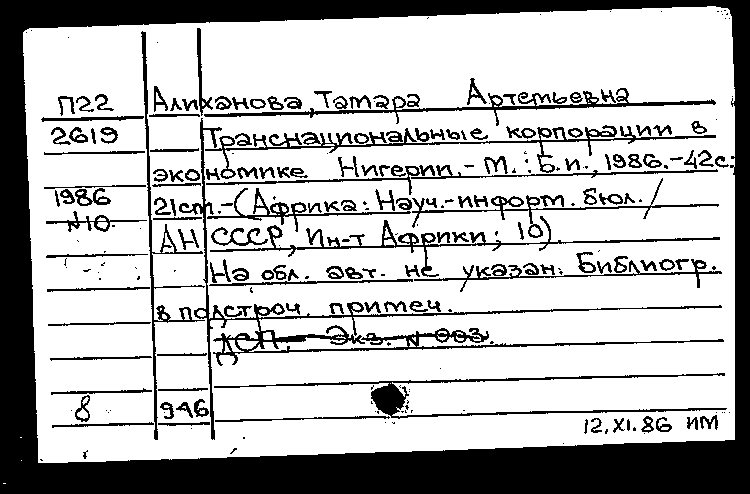 П22 Алиханова, Тамара Артемьевна
2619 Транснациональные корпорации в
экономике Нигерии. - М.: Б.и., 1986. - 42с;
1986 21ст. - (Африка: Науч.-информ. бюл. /
№10. АН СССР, Ин-т Африки; 10).
На обл. авт. не указан. Библиогр.
в подстроч. примеч.
ДСП. Экз. № 003.
8 946
12.XI.86 ИМ